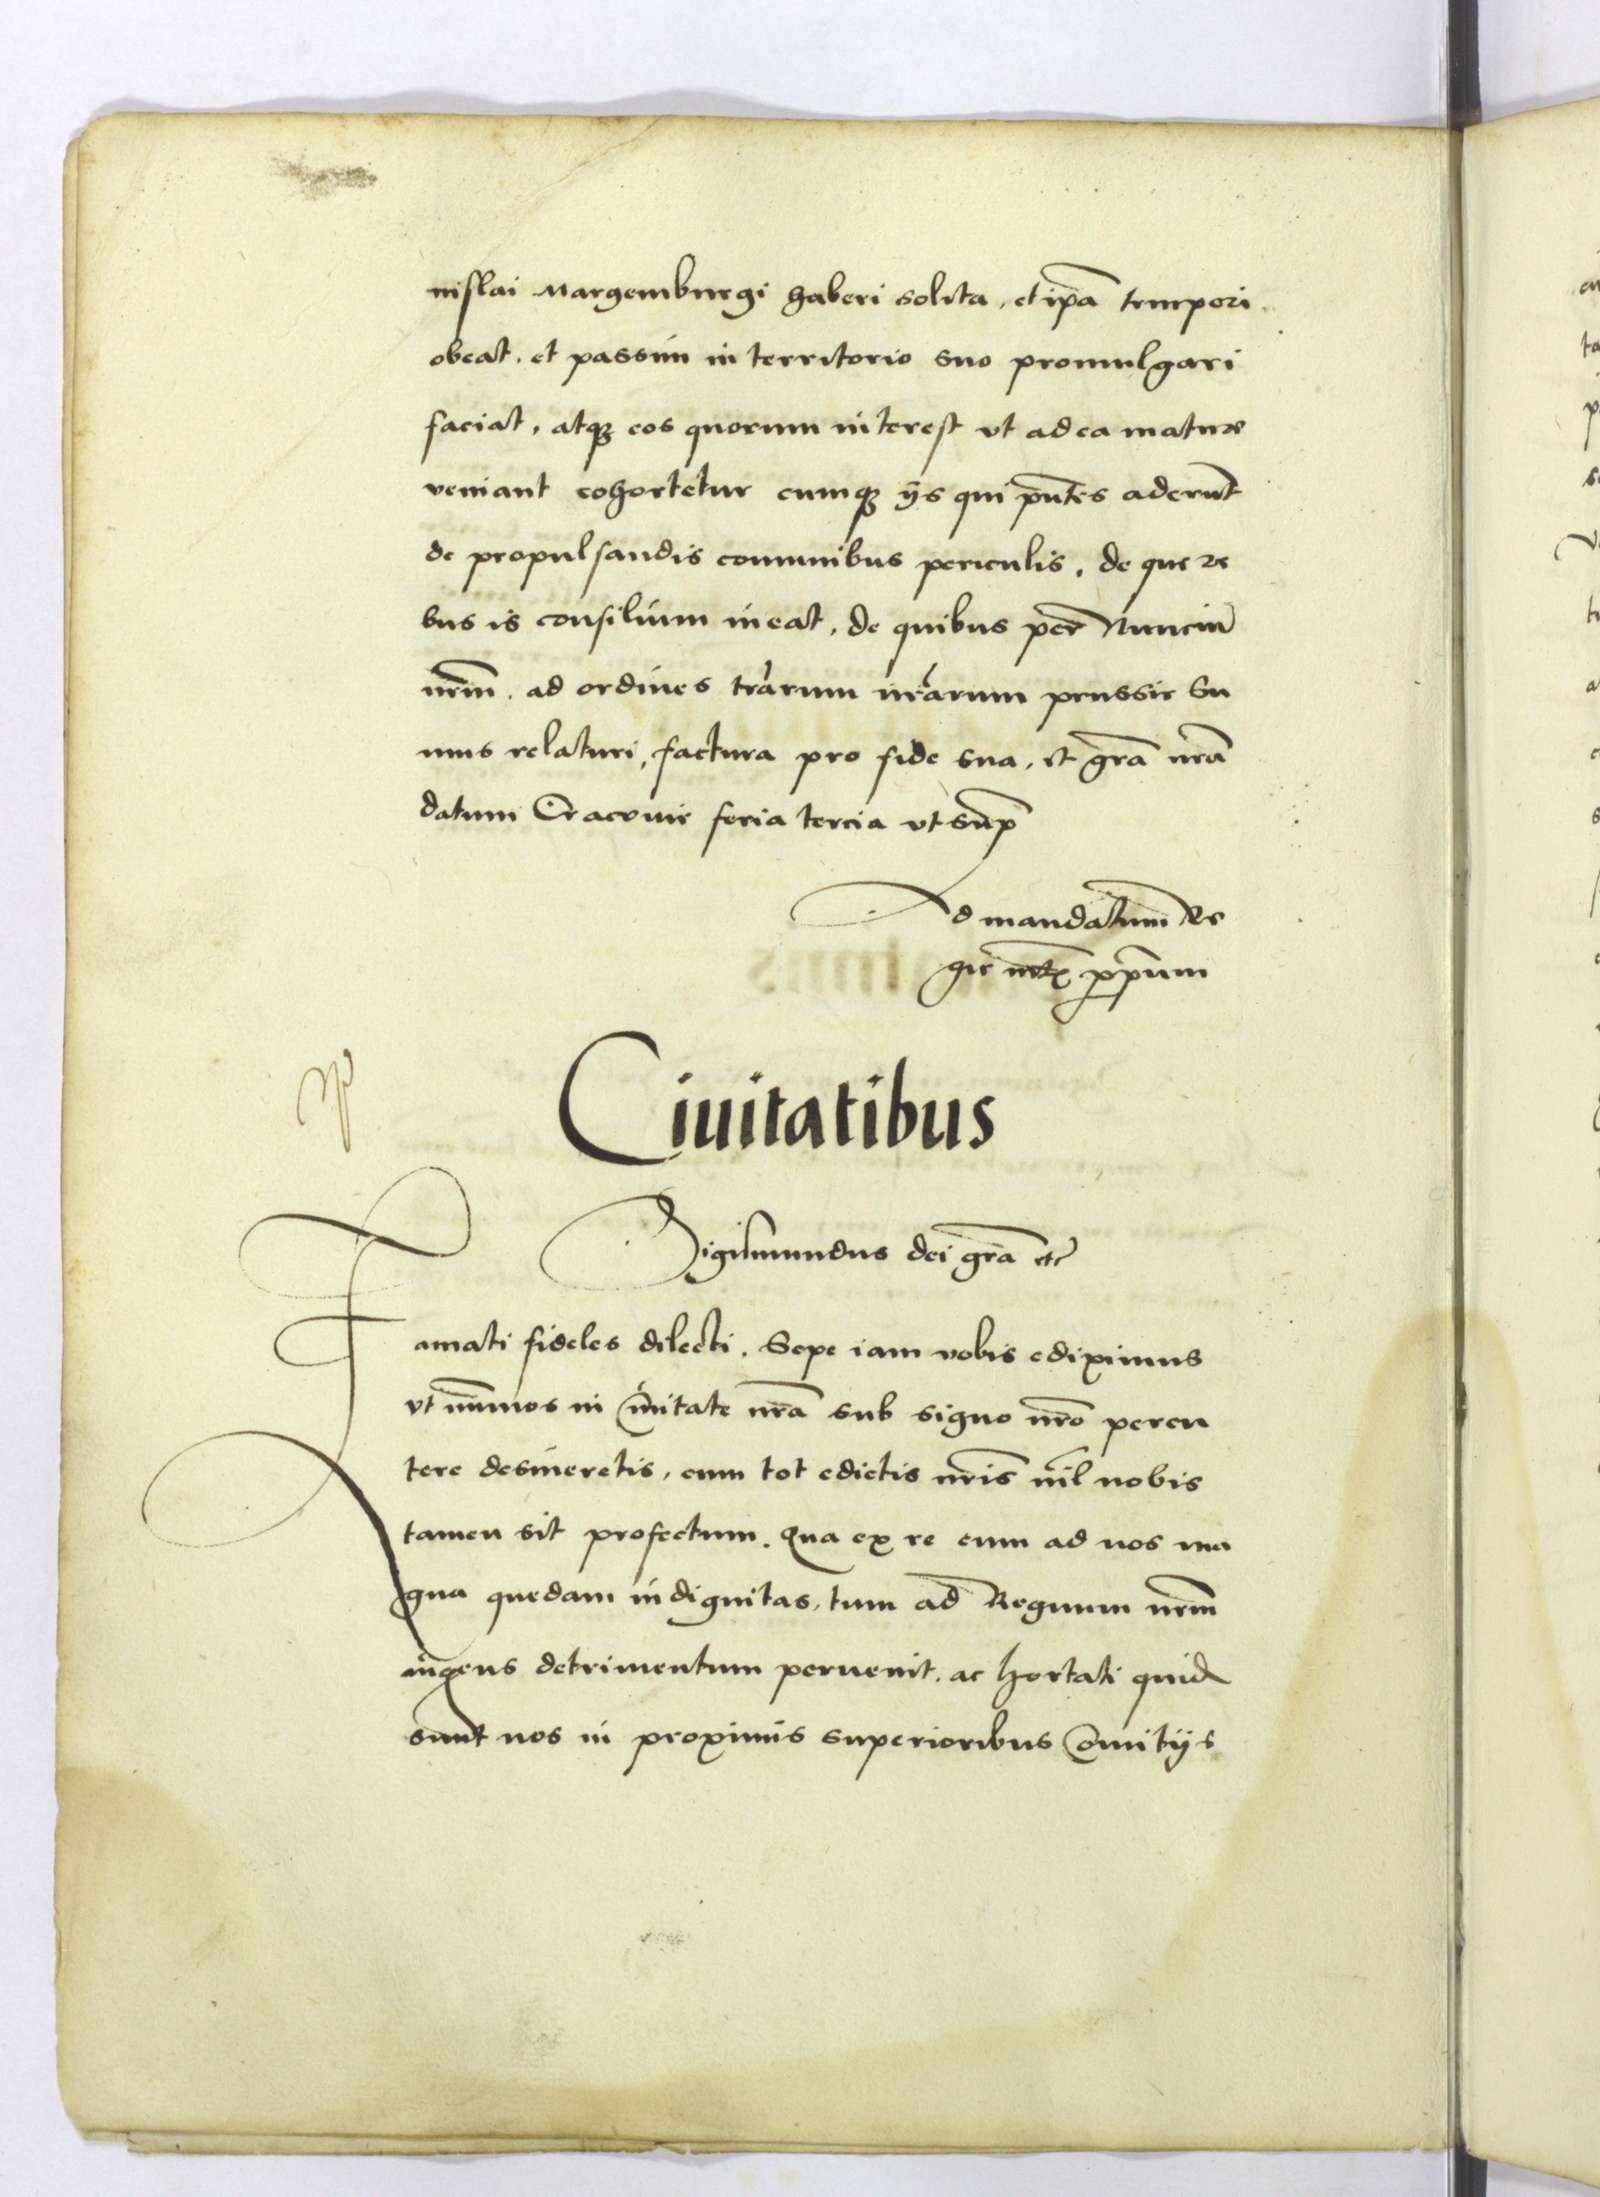 nislai Margemburgi haberi solita, et ip̃a tempori
obeat. et passim in territorio suo promulgari
faciat, atqꝫ eos quorum interest vt ad ea mature
veniant cohortetur cumqꝫ ijs qui p̃ntes aderunt
de propulsandis comunibus periculis, de que re
bus is consilium ineat, de quibus per Nunciũ
nr̃m. ad ordines tr̃arum nr̃arum prussie su
mus relaturi, factura pro fide sua, et gr̃a nr̃a
datum Cracovie feria tercia vt sup̃
Ad mandatum Re
gie mtꝭ ꝓp̃um
Ciuitatibus
Sigismundus dei gr̃a etc̃
Famati fideles dilecti. Sepe iam vobis ediximus
vt num̃os in Ciuitate nr̃a sub signo nr̃o percu
tere desineretis, cum tot edictis nr̃is nil nobis
tamen sit profectum. Qua ex re cum ad nos ma
gna quedam indignitas, tum ad Regnum nr̃m
ingens detrimentum peruenit. ac hortati quid
sunt nos in proximis superioribus Comitijs